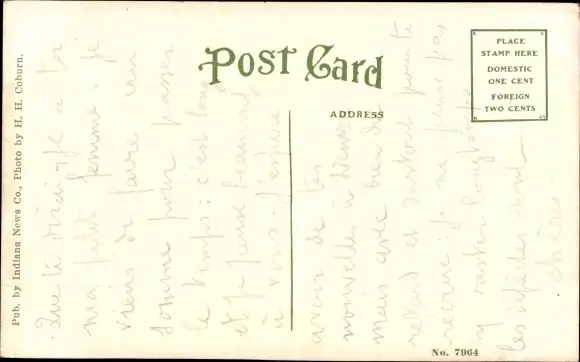 POST CARD
PLACE
STAMP HERE
DOMESTIC
ONE CENT
FOREIGN
TWO CENTS
ADDRESS
Pub. by Indiana News Co., Photo by H. H. Coburn.
No. 7964
Que te dirai-je à toi
ma petit femme. je
viens de faire un
somme pour passer
le temps: c'est long
et je pense beaucoup
à vous. J'espère
avoir de tes
nouvelles à
mais avec
retard et surtout pour te
récrire. je ne pense pas
y rester longtemps
les dépêches sont
chères.